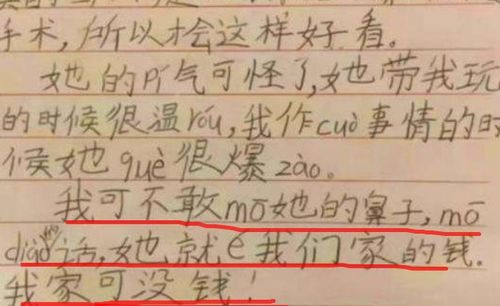 手术,所以才会这样好看。
她的Pí气可怪了,她带我玩
的时候很温róu,我作cuò事情的时
候她què很爆zào。
我可不敢mō她的鼻子,mō
diào话,她就é我们家的钱.
我家可没钱!